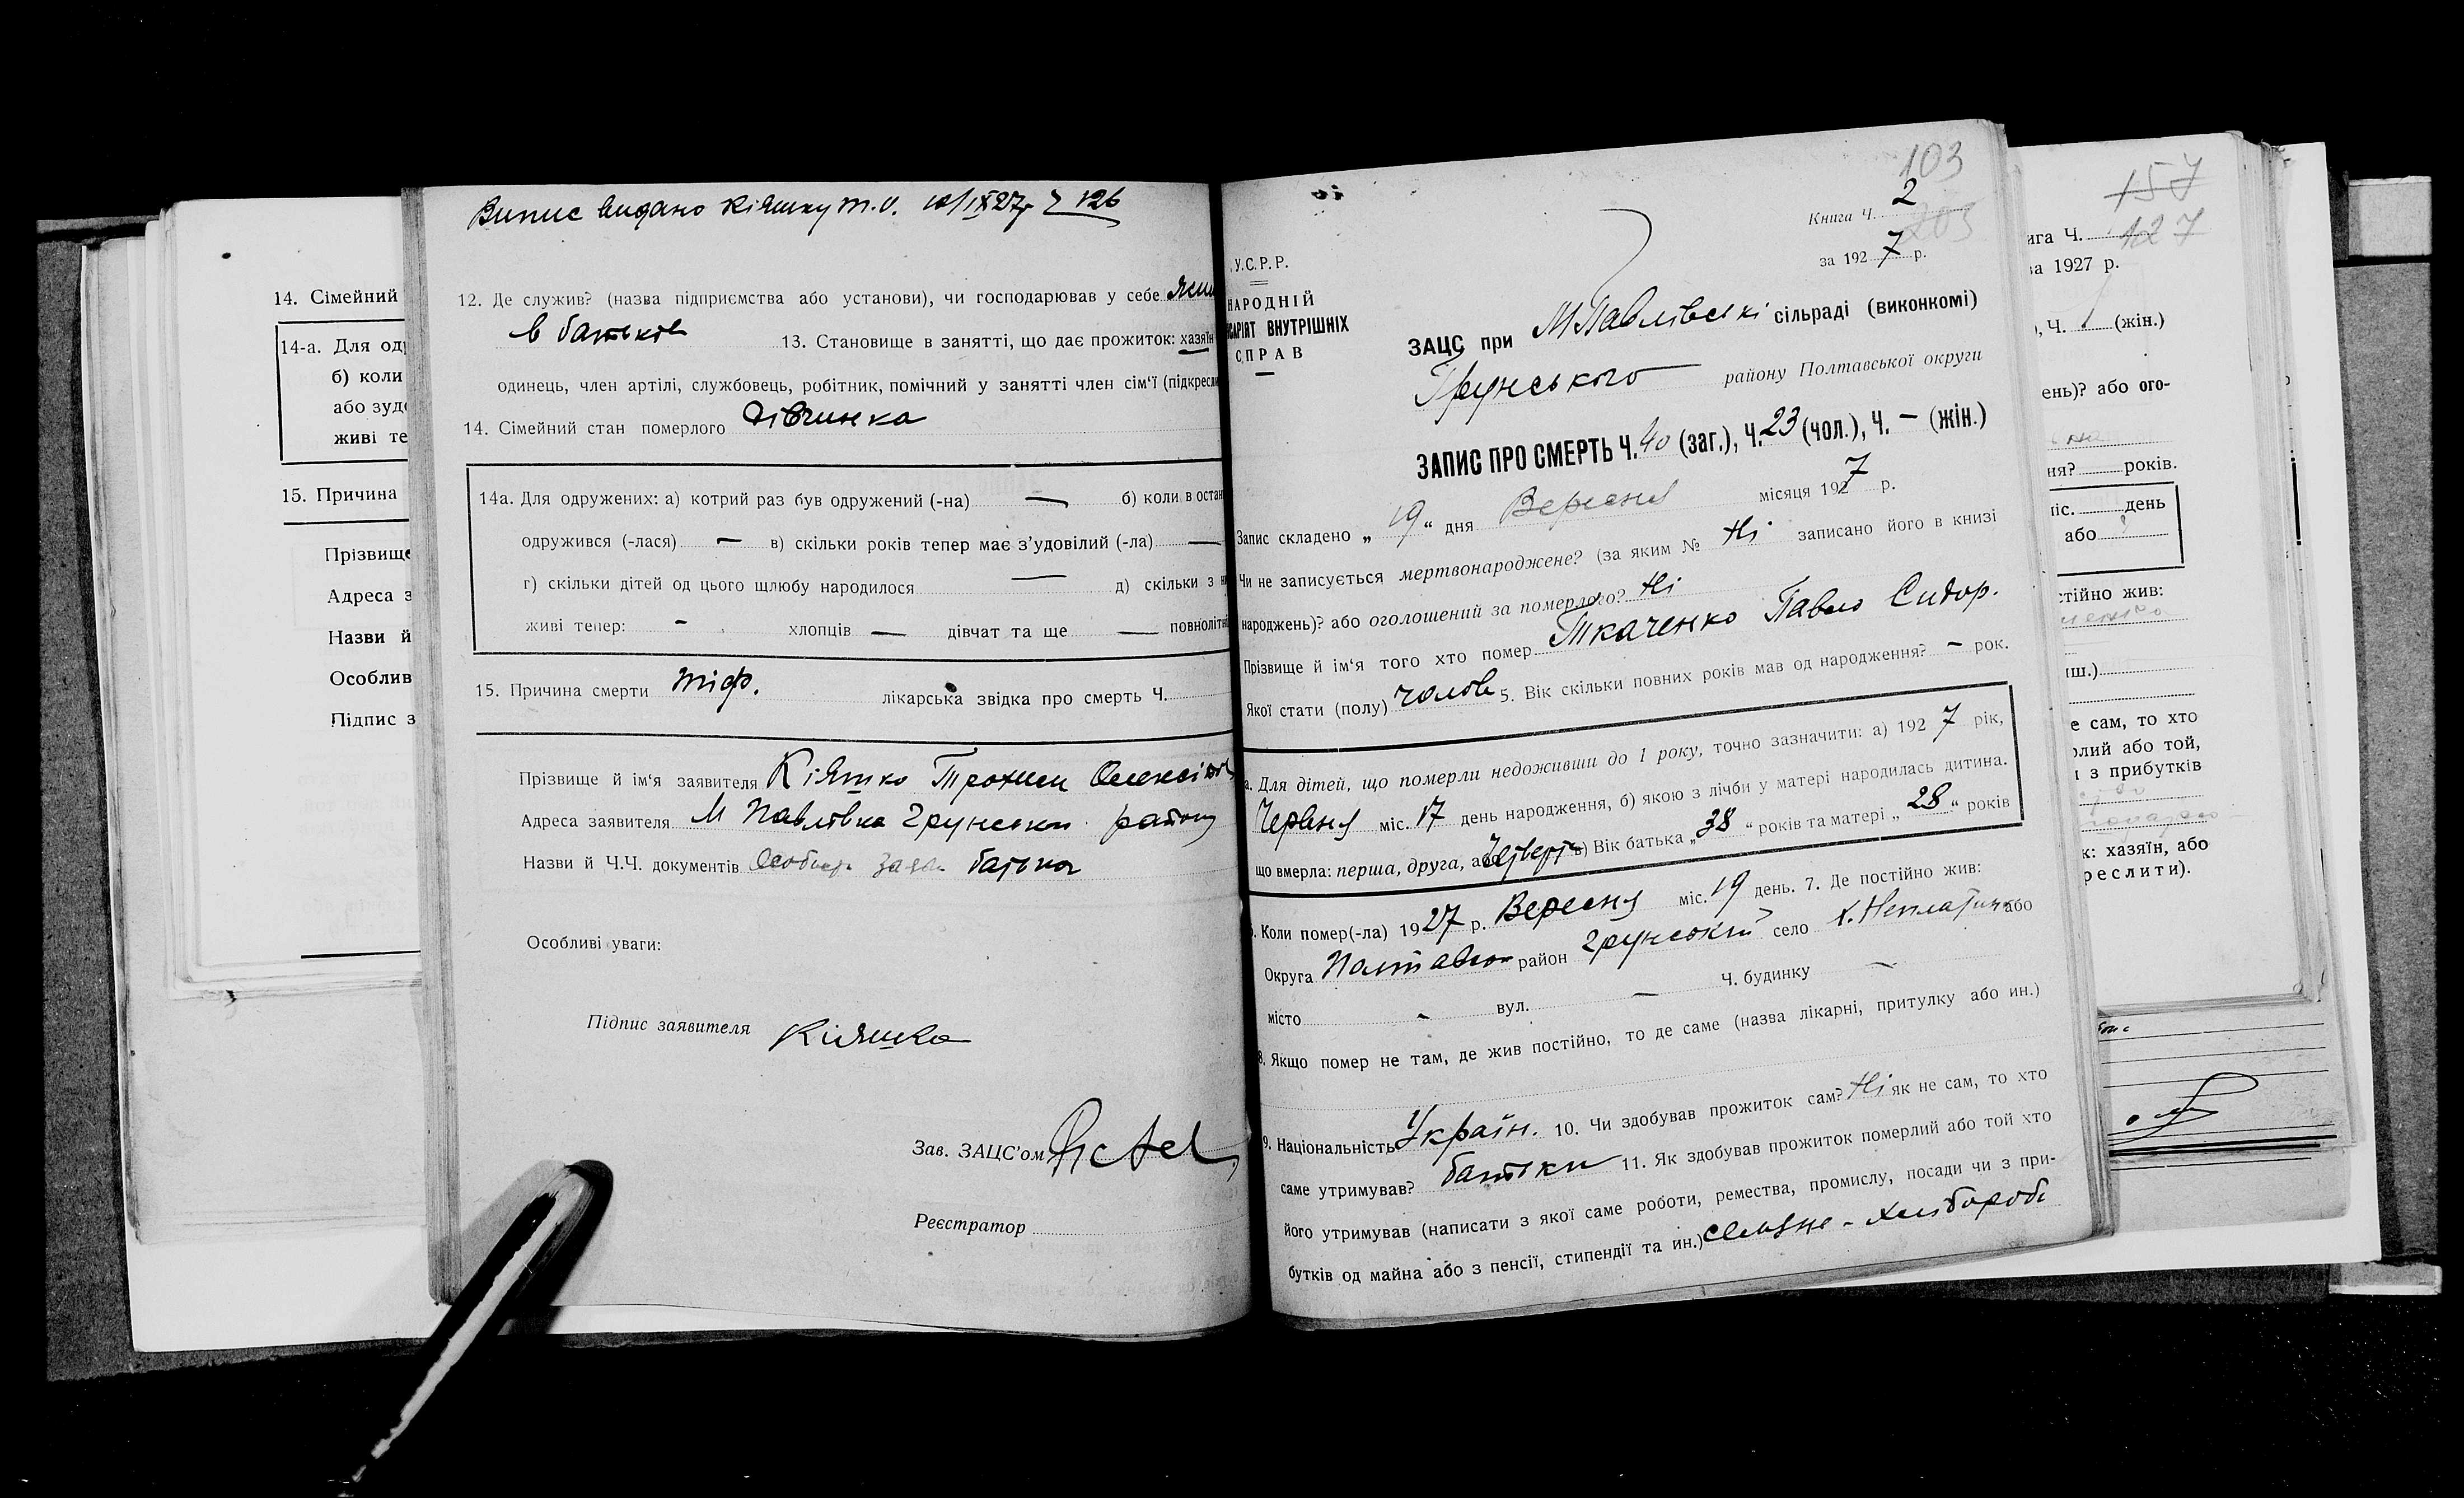 14. Сімейний
14-а. Для од
б) коли
або зуд
живі те
15. Причина
Прізвище
Адреса з
Назви й
Особлив
Підпис з
Випис видано Кіяшку Т.О. 10/IX27р. 126
12. Де служив? (назва підприємства або установи), чи господарював у себе
в батьків 13. Становище в занятті, що дає прожиток: хазяїн
одинець, член артілі, службовець, робітник, помічний у занятті член сім'ї (підкресли
14. Сімейний стан померлого дівчинка
14а. Для одружених: а) котрий раз був одружений (-на) — б) коли в остан
одружився (-лася) — в) скільки років тепер має з'удовілий (-ла) —
г) скільки дітей од цього шлюбу народилося — д) скільки з н
живі тепер: - хлопців — дівчат та ще — повнолітні
15. Причина смерти тіф. лікарська звідка про смерть Ч.
Прізвище й ім'я заявителя Кіяшко Трохим Олексійов
Адреса заявителя М Павлівка Грунськ. району
Назви й Ч.Ч. документів Особист. заява батька
Особливі уваги:
Підпис заявителя Кіяшко
Зав. ЗАЦС'ом
Реєстратор
103
203
Книга Ч. 2
за 1927 р.
У.С.Р.Р.
НАРОДНІЙ
САРІЯТ ВНУТРІШНІХ
СПРАВ
ЗАЦС при МПавлівській сільраді (виконкомі)
Грунського району Полтавської округи
ЗАПИС ПРО СМЕРТЬ Ч. 40 (заг.), Ч. 23 (чол.), Ч. — (жін.)
Запис складено „19“ дня Вересня місяця 1927 р.
Чи не записується мертвонароджене? (за яким № Ні записано його в книзі
народжень)? або оголошений за померлого? Ні
Прізвище й ім'я того хто помер Ткаченко Павло Сидор.
Якої стати (полу) чолов 5. Вік скільки повних років мав од народження? — рок.
а. Для дітей, що померли недоживши до 1 року, точно зазначити: а) 1927 рік,
Червня міс. 17 день народження, б) якою з лічби у матері народилась дитина.
що вмерла: перша, друга, або Четверт в) Вік батька „38“ років та матері „28“ років
6. Коли помер(-ла) 1927 р. Вересня міс. 19 день. 7. Де постійно жив:
Округа Полтавськ район Грунський село або
місто - вул. — Ч. будинку —
8. Якщо помер не там, де жив постійно, то де саме (назва лікарні, притулку або ин.)
9. Національність Україн. 10. Чи здобував прожиток сам? Ні як не сам, то хто
саме утримував? батьки 11. Як здобував прожиток померлий або той хто
його утримував (написати з якої саме роботи, ремества, промислу, посади чи з при-
бутків од майна або з пенсії, стипендії та ин.) селяне - хлібороби
157
127
ига Ч.
за 1927 р.
), Ч. (жін.)
ень)? або ого-
ня? років.
міс. день
або
стійно жив:
иш.)
е сам, то хто
рлий або той,
и з прибутків
к: хазяїн, або
реслити).